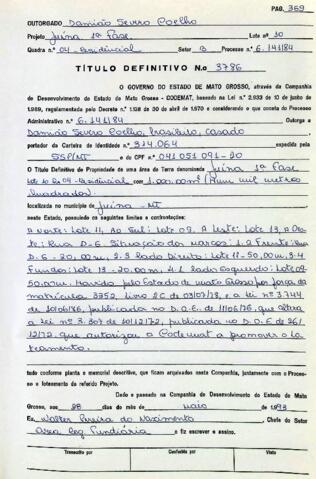 PAG. 369
OUTORGADO Damião Severo Coelho
Projeto Juina 1ª Fase. Lote nº 10
Quadra n.º 04-Residencial Setor B Processo n.º 6.141/84
TÍTULO DEFINITIVO N.o 3786
O GOVERNO DO ESTADO DE MATO GROSSO, através da Companhia
de Desenvolvimento do Estado de Mato Grosso - CODEMAT, baseado na Lei n.º 2.933 de 10 de junho de
1.969, regulamentada pelo Decreto n.º 1.138 de 30 de abril de 1.970 e considerando o que consta do Processo
Administrativo n.º 6.141/84 Outorga a
Damião Severo Coelho, brasileiro, casado
portador da Carteira de Identidade n.º 314.064 expedida pela
SSP/MT e do CPF n.º 041 051 091-20
O Título Definitivo de Propriedade de uma área de Terra denominada Juina 1ª Fase
lote 10 Q. 04-Residencial com 1.000,00m² (Hum mil metros
quadrados)
localizada no município de Juina - MT
neste Estado, possuindo os seguintes limites e confrontações:
A Norte: Lote 11, Ao Sul: Lote 09, A Leste: Lote 13, A Oes
te: Rua D-6. Situação dos Marcos: 1.2 Frente: Rua
D-6 - 20,00m, 2.3 Lado Direito: Lote 11-50,00m, 3.4
Fundos: Lote 13 - 20,00m, 4.1 lado esquerdo: Lote 09-
50,00m. Havido pelo Estado de Mato Grosso por força da
matrícula 3252, livro 2C de 03/07/78, e a lei nº 3.744
de 10/06/76, publicada no D.O.E. de 11/06/76, que altera
a lei nº 3.307 de 10/12/72, publicada no D.O.E. de 26/
12/72, que autoriza a Codemat a promover o lo
teamento.
tudo conforme planta e memorial descritivo, que ficam arquivados nesta Companhia, juntamente com o Proces-
so e loteamento do referido Projeto.
Dado e passado na Companhia de Desenvolvimento do Estado de Mato
Grosso, aos 28 dias do mês de Maio de 1.993
Eu, Walter Pereira do Nascimento, Chefe do Setor
Area Reg Fundiária o fiz escrever e assino.
Transcrito por Conferido por Visto